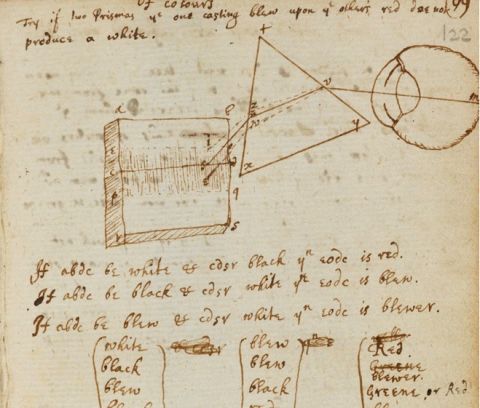 Of colours 99
Try if two Prismas yᵉ one casting blew upon yᵉ others red doe not
produce a white. 122
t
v
m
a
z
w
y
x
q
r s
If abdc be white & cdsr black yⁿ eodc is red.
If abdc be black & cdsr white yⁿ eodc is blew.
If abdc be blew & cdsr white yⁿ eodc is blewer.
white blew Red
black blew Greene
blew black blewer.
Greene, or Red